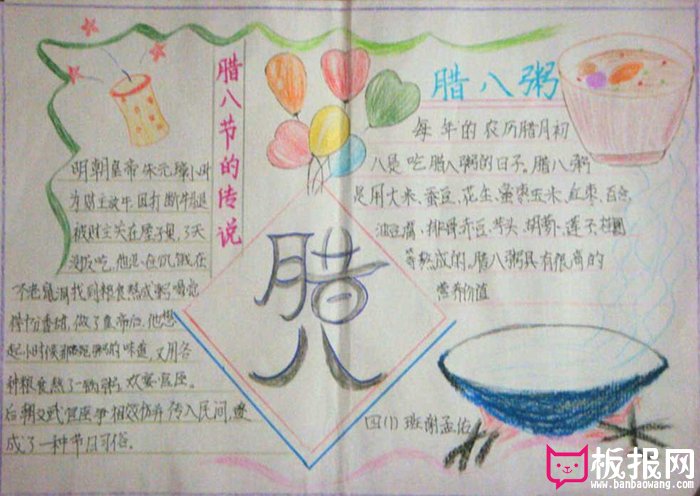 腊八节的传说
明朝皇帝朱元璋小时
为财主放牛,因打断牛腿
被财主关在屋子里,3天
没饭吃,他
在老鼠洞找到粮食熬成粥喝觉
得十分香甜,做了皇帝后,他想
起小时候那 的味道,又用各
种粮食熬了一锅粥,欢宴
后 传入民间,
成了一种节日习俗
腊八
腊八粥
每年的农历腊月初
八是吃腊八粥的日子。腊八粥
是用大米、蚕豆、花生、 玉米、红枣、百合、
油豆腐、排骨赤豆、芋头、胡萝卜、莲子、桂圆
等熬成的,腊八粥具有很高的
营养价值
四(1)班谢孟佑
板报网
www.banbaowang.com